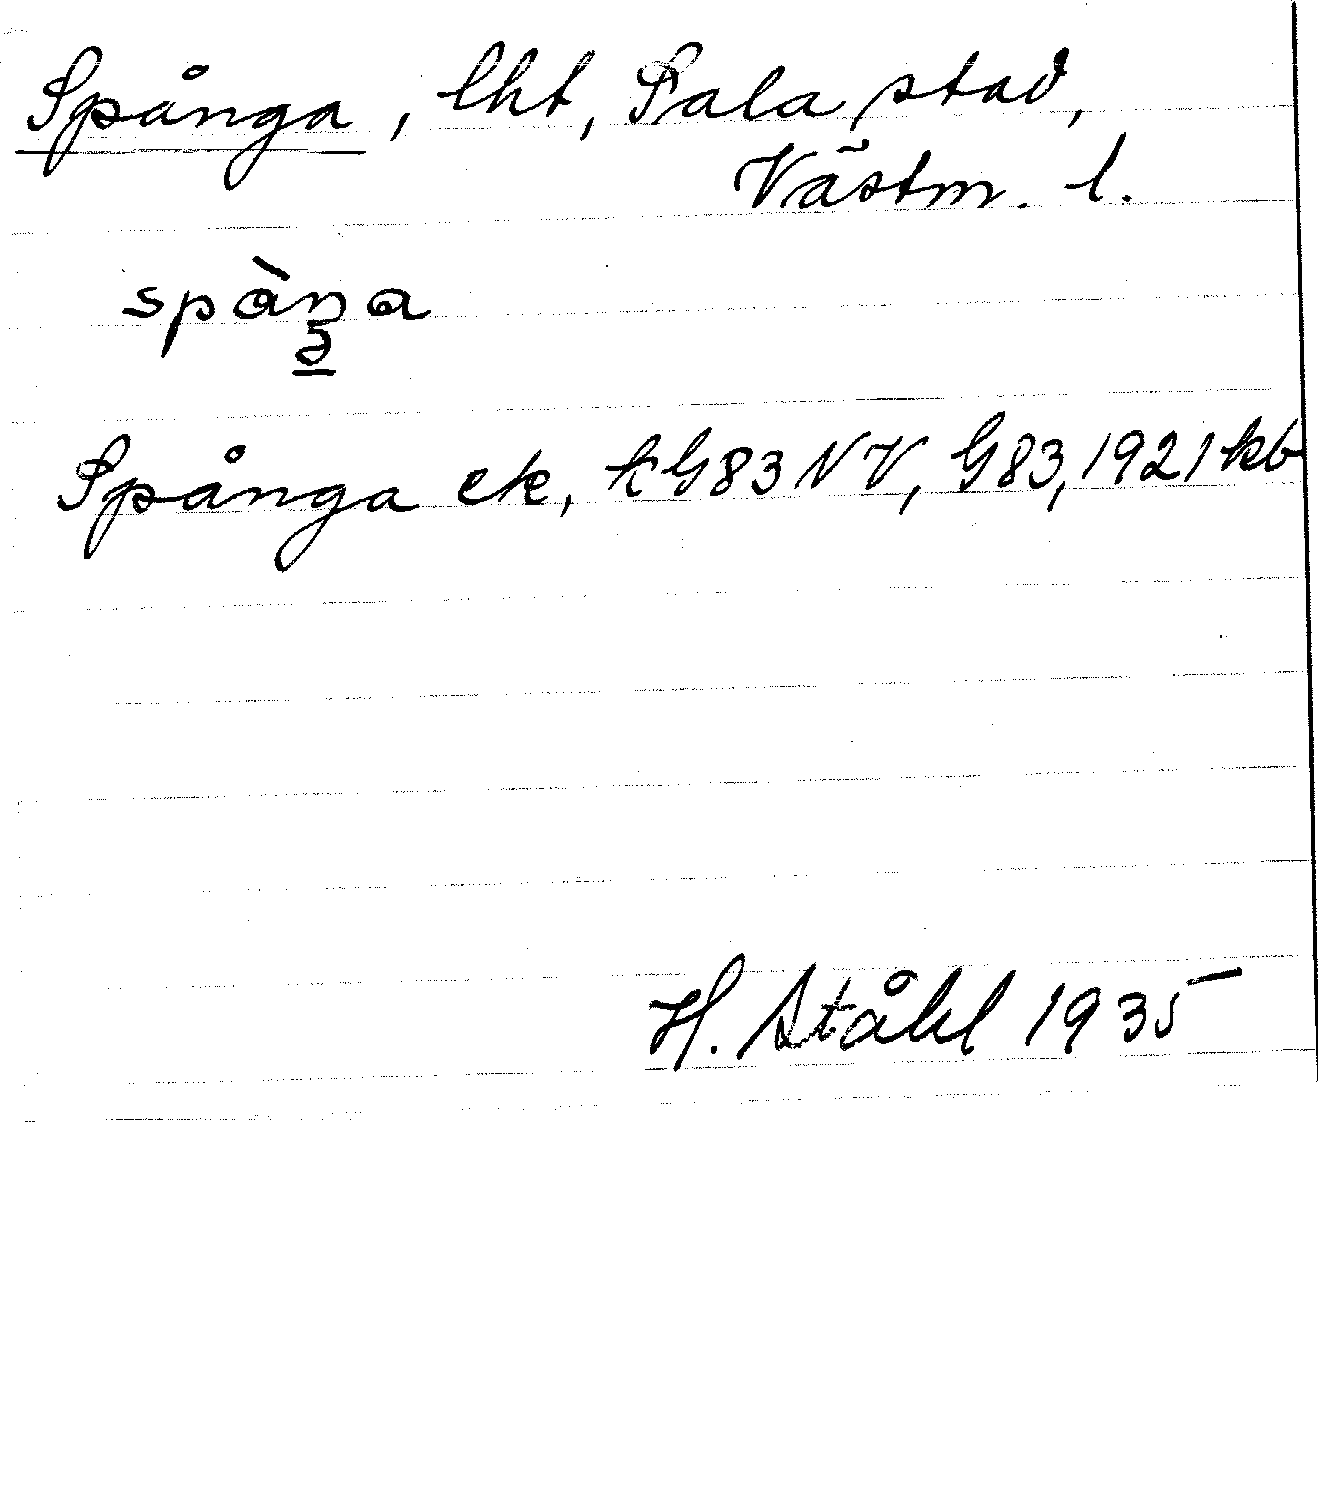 Spånga, lht, Sala stad,
Västm. l.
spàŋa
Spånga ek, kG83NV, G83, 1921 kb
H. Ståhl 1935